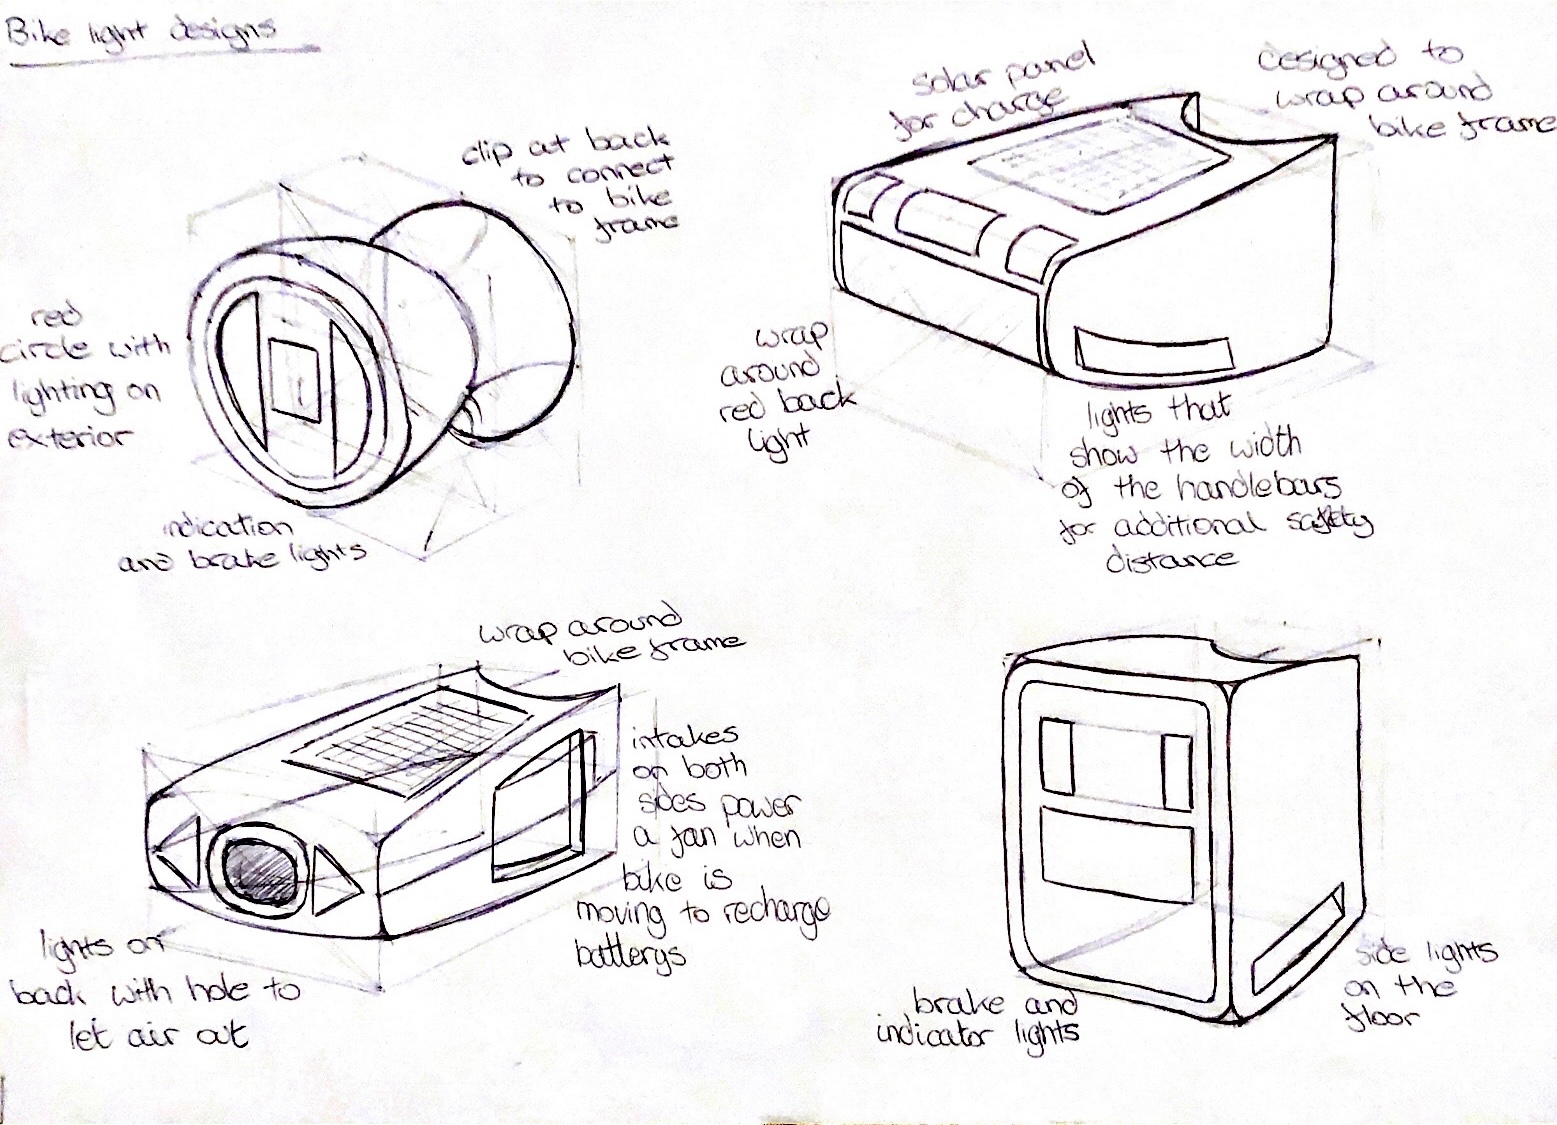 Bike light designs
clip at back
to connect
to bike
frame
red
circle with
lighting on
exterior
indication
and brake lights
solar panel
for charge
designed to
wrap around
bike frame
wrap
around
red back
light
lights that
show the width
of the handlebars
for additional safety
distance
wrap around
bike frame
intakes
on both
sides power
a fan when
bike is
moving to recharge
batterys
lights on
back with hole to
let air out
brake and
indicator lights
side lights
on the
floor